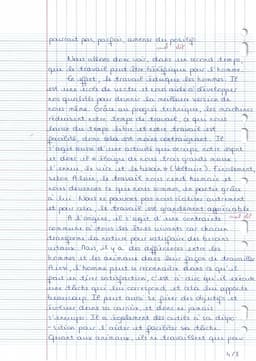 pourtant pas parfois, amener du positif.
mal dit
Nous allons donc voir, dans un second temps,
que le travail peut être bénéfique pour l'homme.
En effet, le travail éduque les hommes. Il
est une école de vertu et nous aide à développer
nos qualités pour devenir la meilleure version de
nous même. Grâce au progrès technique, les machines
réduisent notre temps de travail ce qui nous
laisse du temps libre et notre travail est
facilité, donc cela est moins contraignant. Il
s'agit aussi d'une activité qui occupe notre esprit
et donc il « éloigne de nous trois grands maux :
l'ennui, le vice et le besoin » (Voltaire). Finalement,
selon Alain, le travail nous rend humain et
nous devenons ce que nous sommes en partie grâce
à lui. Nous ne pouvons pas nous réaliser autrement
et pour cela, le travail est grandement appréciable.
mal dit
A l'origine, il s'agit d'une contrainte
commune à tous les êtres vivants car chacun
transforme la nature pour satisfaire des besoins
vitaux. Mais, il y a des différences entre les
hommes et les animaux dans leur façon de travailler.
Ainsi, l'homme peut se reconnaître dans ce qu'il
fait ou tirer satisfaction, c'est à dire qu'il exécute
une tâche qui lui correspond et cela lui apporte
beaucoup. Il peut aussi se fixer des objectifs et
évoluer dans sa carrière, et donc ne jamais
s'ennuyer. Il a également des outils à sa dispo-
-sition pour l'aider et faciliter sa tâche.
Quant aux animaux, ils ne travaillent que par
4/8